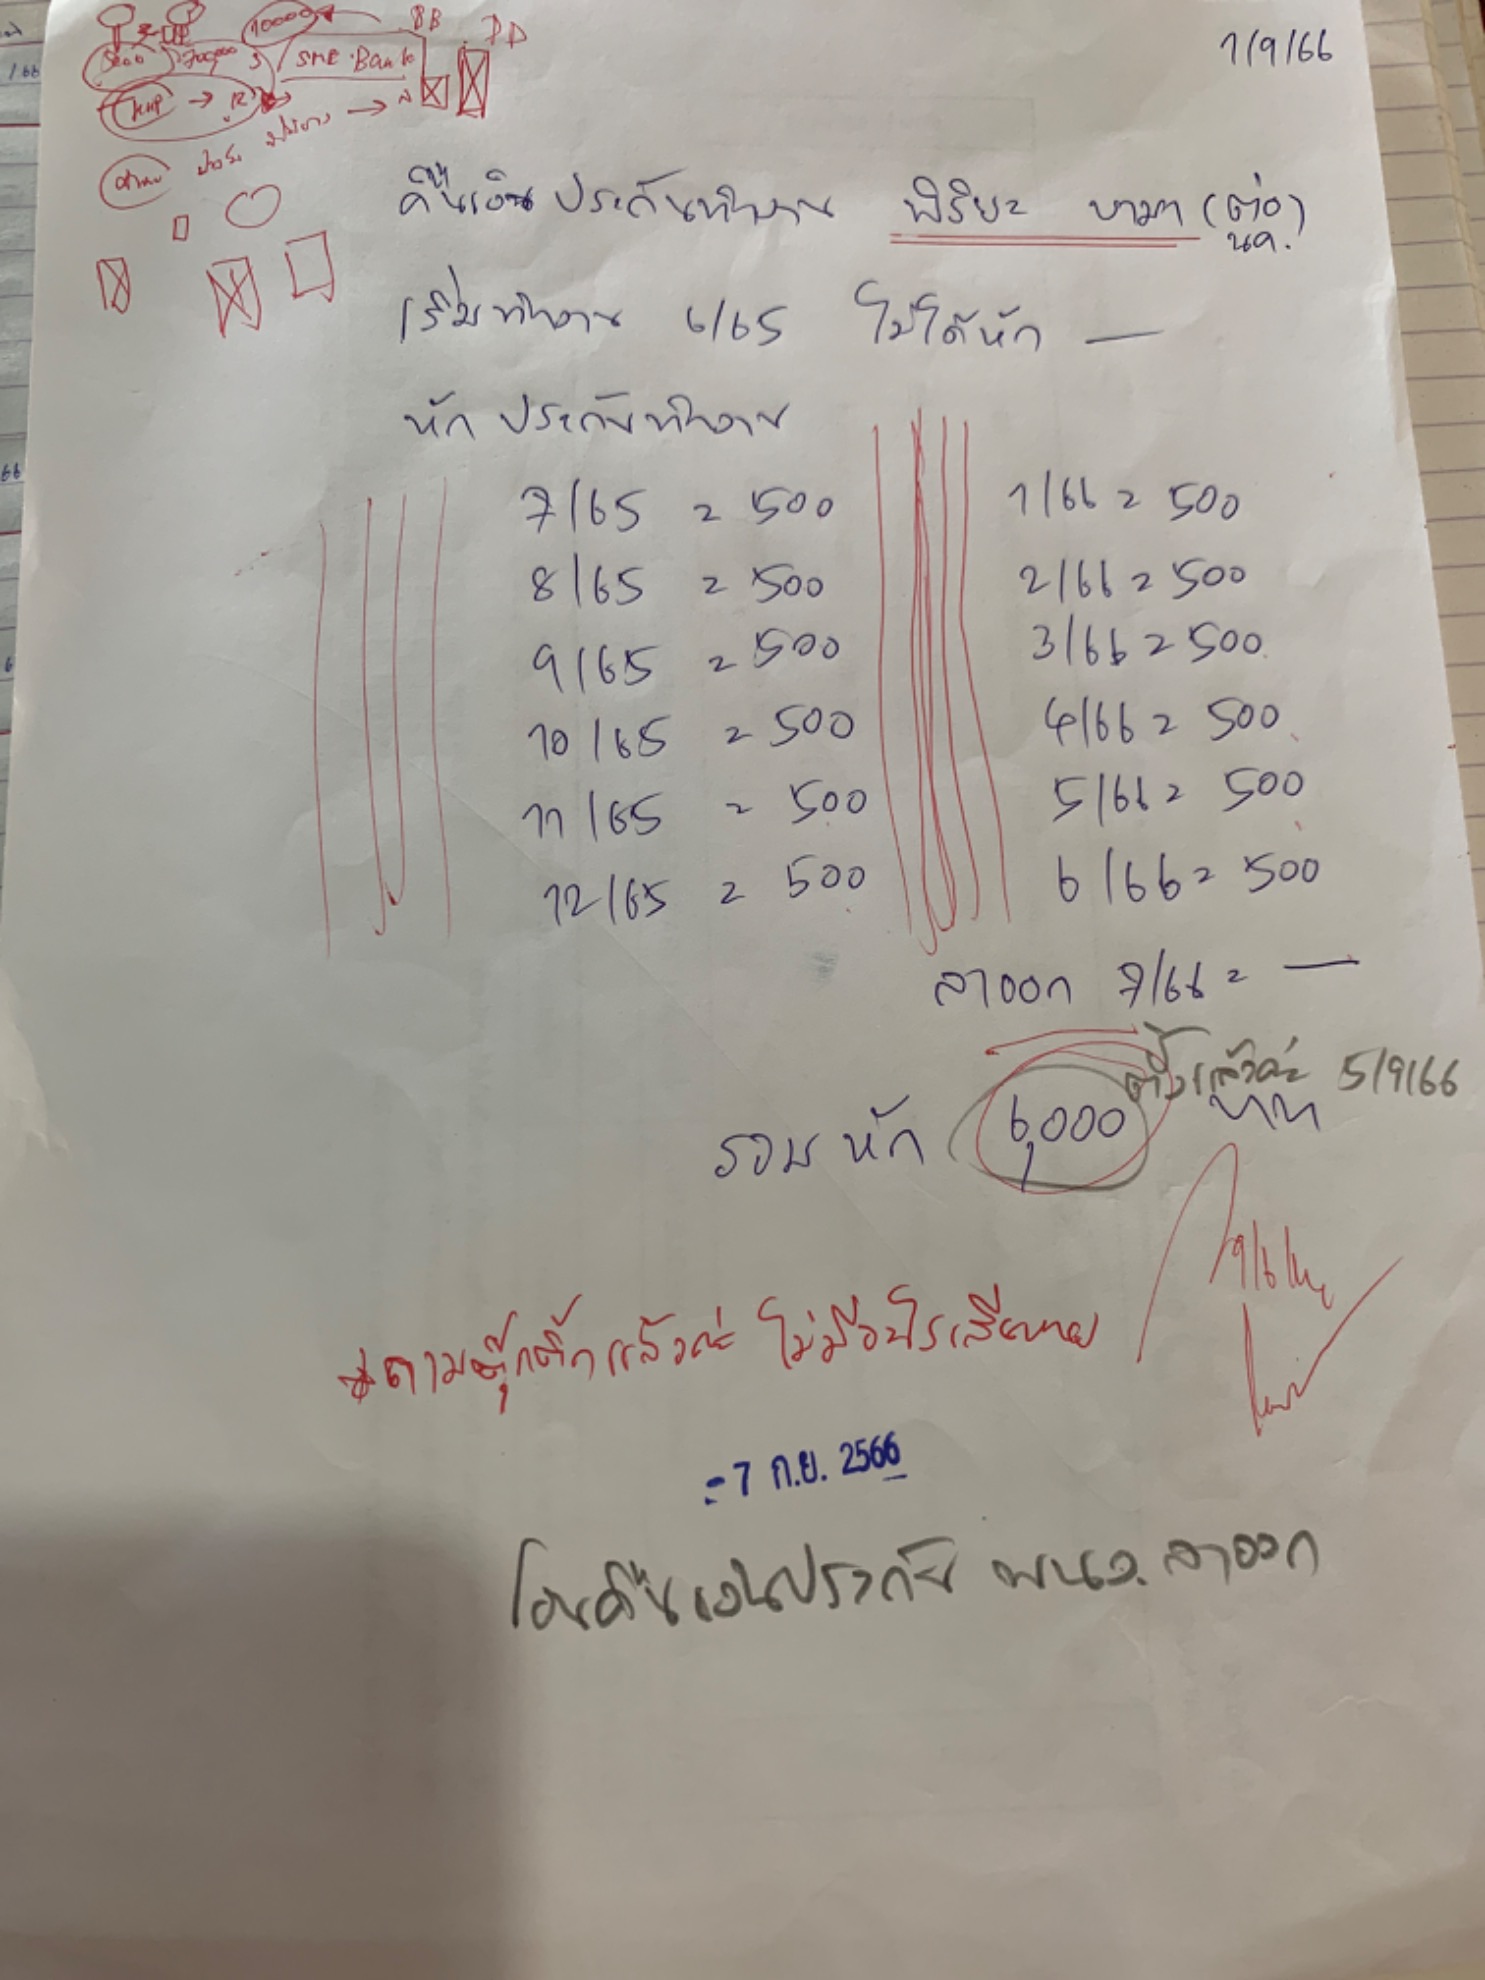 10000
BB
PD
5000 700,000
SME Bank
1/9/66
คืนเงินประกันทำงาน พิริยะ ขามา (ต่อ)
นค.
เริ่มทำงาน 6/65 ไม่ได้หัก —
หัก ประกันทำงาน
7/65 = 500 1/66 = 500
8/65 = 500 2/66 = 500
9/65 = 500 3/66 = 500
10/65 = 500 4/66 = 500
11/65 = 500 5/66 = 500
12/65 = 500 6/66 = 500
ลาออก 7/66 = —
ตั้งแล้วค่ะ 5/9/66
รวม หัก 6,000 บาท
*ถามตุ๊กติ๊กแล้วค่ะ ไม่มีอะไรเสียหาย
-7 ก.ย. 2566
โอนคืนเงินประกัน พนง. ลาออก